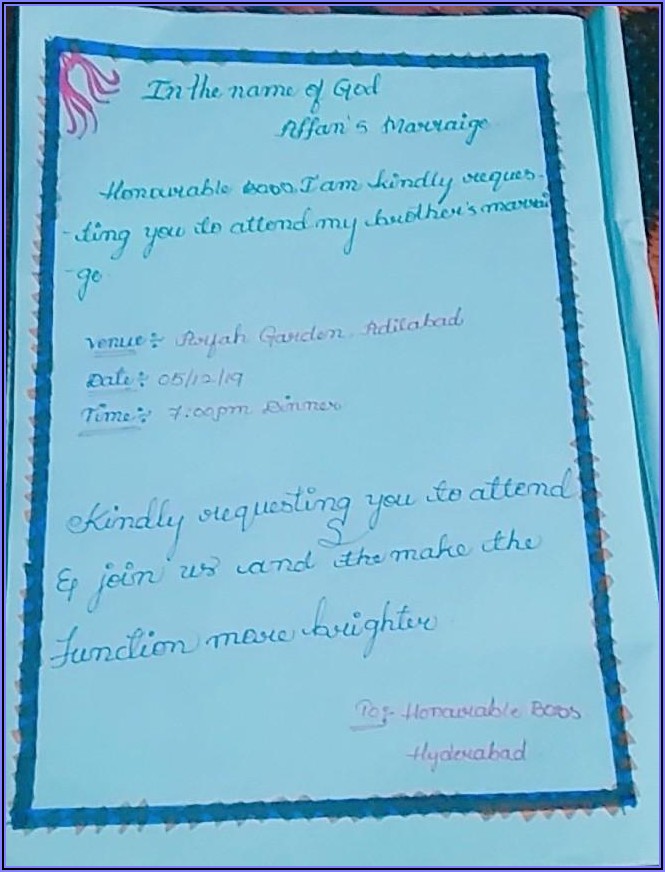 In the name of God
Affan's Marraige
Honourable Boss. I am kindly reques-
-ting you to attend my brother's marrai
-ge
Venue:- Garden, Adilabad
Date:- 05/12/19
Time:- 7:00pm Dinner
Kindly requesting you to attend
& join us and the make the
function more brighter
To:- Honourable Boss
Hyderabad